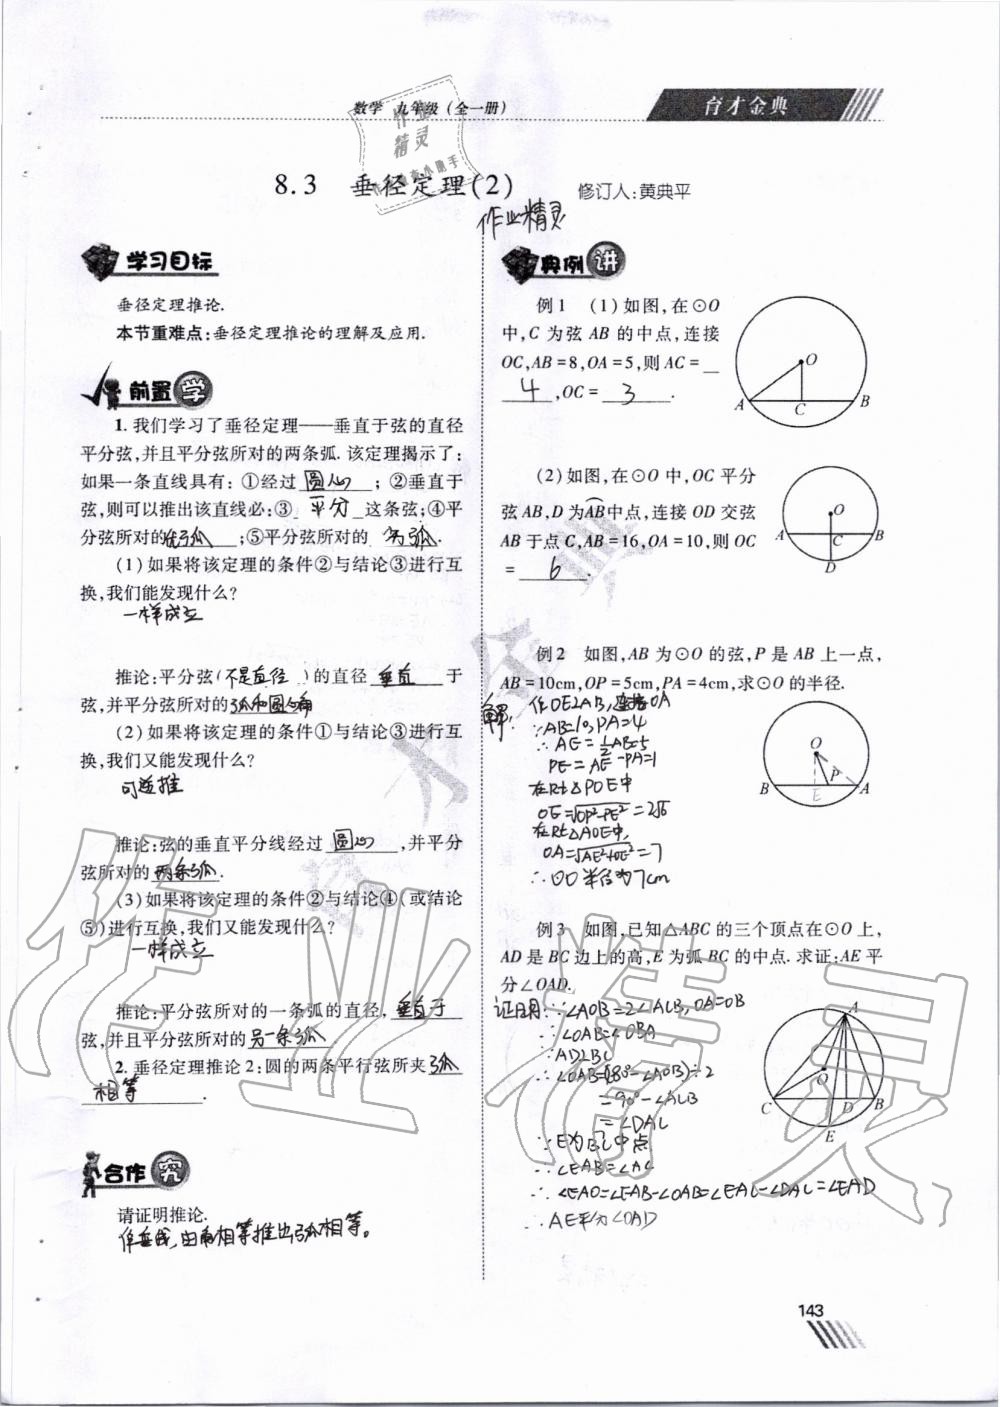 数学 九年级(全一册)
育才金典
8.3 垂径定理(2)
修订人:黄典平
作业精灵
学习目标
垂径定理推论.
本节重难点:垂径定理推论的理解及应用.
前置 学
1. 我们学习了垂径定理——垂直于弦的直径
平分弦,并且平分弦所对的两条弧. 该定理揭示了:
如果一条直线具有: ①经过 圆心 ; ②垂直于
弦,则可以推出该直线必:③ 平分 这条弦;④平
分弦所对的优弧 ;⑤平分弦所对的 劣弧.
(1)如果将该定理的条件②与结论③进行互
换,我们能发现什么?
一样成立
推论:平分弦(不是直径)的直径 垂直 于
弦,并平分弦所对的
(2)如果将该定理的条件①与结论③进行互
换,我们又能发现什么?
可逆推
推论:弦的垂直平分线经过 圆心 ,并平分
弦所对的两条弧.
(3)如果将该定理的条件②与结论④(或结论
⑤)进行互换,我们又能发现什么?
一样成立
推论:平分弦所对的一条弧的直径, 垂直于
弦,并且平分弦所对的 另一条弧
2. 垂径定理推论2:圆的两条平行弦所夹 弧
相等 .
合作 究
请证明推论.
作垂线,由角相等推出弧相等。
典例 讲
例1 (1)如图,在⊙O
中,C 为弦 AB 的中点,连接
OC,AB=8,OA=5,则 AC=
4 ,OC= 3 .
O
A
C
B
(2)如图,在⊙O 中,OC 平分
弦AB,D 为AB中点,连接 OD 交弦
AB 于点 C,AB=16,OA=10,则 OC
= 6 .
O
A
C
B
D
例2 如图,AB 为⊙O 的弦,P 是 AB 上一点,
AB=10cm,OP=5cm,PA=4cm,求⊙O 的半径.
解: 作OE⊥AB,连接OA
∵AB=10,PA=4
∴AE=1/2AB=5
PE=AE-PA=1
在Rt△POE中
OE=√OP²-PE²=2√6
在Rt△AOE中,
OA=√AE²+OE²=7
∴⊙O半径为7cm
O
B
E
P
A
例3 如图,已知△ABC 的三个顶点在⊙O 上,
AD 是 BC 边上的高,E 为弧 BC 的中点. 求证:AE 平
分∠OAD.
证明:∵∠AOB=2∠ACB,OA=OB
∴∠OAB=∠OBA
∵AD⊥BC
∴∠OAB=(180°-∠AOB)÷2
=90°-∠ACB
=∠DAC
∵E为BC中点
∴∠EAB=∠AC
∴∠EAO=∠EAB-∠OAB=∠EAC-∠DAC=∠EAD
∴AE平分∠OAD
A
O
C
D
B
E
143